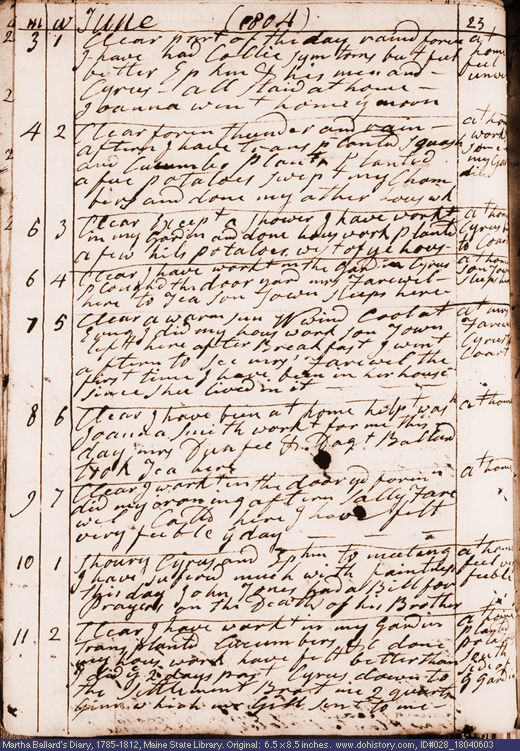 m w June (1804) 23
3 1 Clear part of the day raind forenn at
I have had Collic symtoms but feel home
better Ephm & his men and feel
Cyrus all Staid at home unwell
Joanna went home y moon
4 2 Clear foren thunder and rain at home
aftern I have transplanted Squash workt
and Cucumber Plants Planted in
a few potatoes swept my Cham my Gar
bers and done my other houswk din
5 3 Clear Except a shower I have workt at home
in my gardin and done hous work Planted Cyrus
a few hils potatoes west of ye hous to Coart
6 4 Clear I have workt in the gardin Cyrus at home
Ploughd the door yard mrs Farewel son Town
here to Tea son Town sleeps here sleeps here
7 5 Clear a warm sun Wind Cool at at mrs
Evng I did my housework son Town Farewels
left here after Breakfast I went Cyrus
aftern to see mrs Farewel the Coart
first time I have been in her house
since shee lived in it
8 6 Clear I have been at home help wash at home
Joanna Smith workt for me this
day mrs & Dagt Ballard
took Tea here
9 7 Clear I workt in the door yd foren at home
did my ironing aftern Sally Fare
well Calld here I have felt
very feeble y day
10 1 Shoury Cyrus and Ephm to meeting at home
I have suffered much with faintness feel very
this day John Jones had a Bill for feeble
Prayers on the Death of his Brother
11 2 Clear I have workt in my Gardin at home
transplantd Cucumbers & done
my hous work have felt better than
I did y 2 days past Cyrus down to
the settlement Brot me 2 quarts side of
ginn which mr Gill sent to me y Gardin
Martha Ballard's Diary, 1785-1812, Maine State Library. Original: 6.5 x 8.5 inches. www.dohistory.com, ID#028_18040603